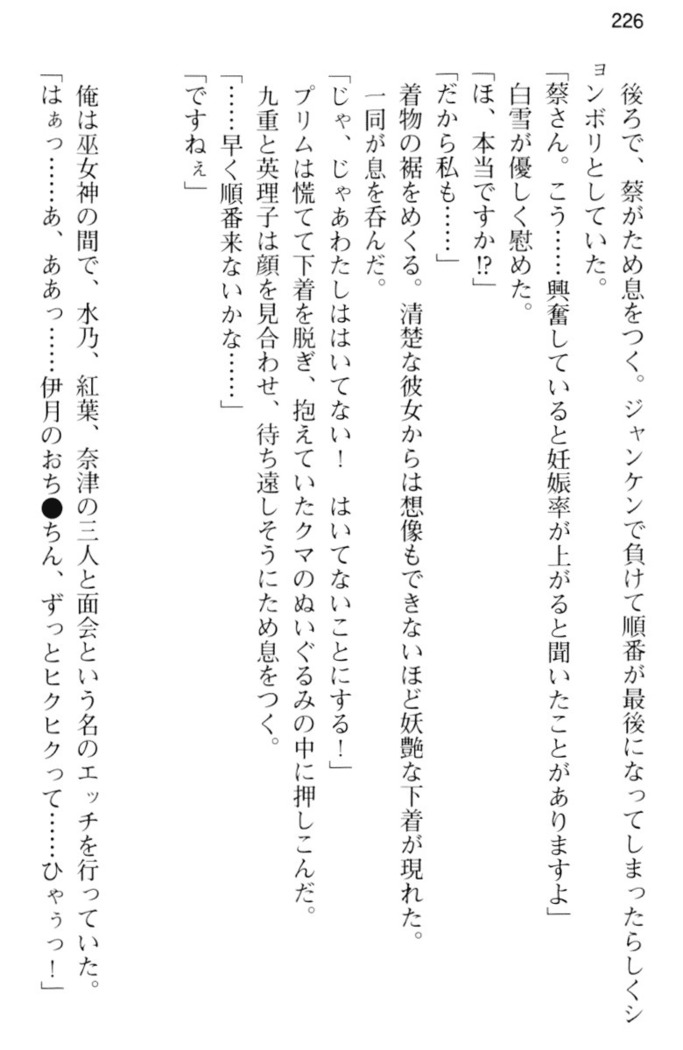 226
　後ろで、蔡がため息をつく。ジャンケンで負けて順番が最後になってしまったらしくシ
ョンボリとしていた。
「蔡さん。こう……興奮していると妊娠率が上がると聞いたことがありますよ」
　白雪が優しく慰めた。
「ほ、本当ですか!?」
「だから私も……」
　着物の裾をめくる。清楚な彼女からは想像もできないほど妖艶な下着が現れた。
　一同が息を呑んだ。
「じゃ、じゃあわたしははいてない！　はいてないことにする！」
　プリムは慌てて下着を脱ぎ、抱えていたクマのぬいぐるみの中に押しこんだ。
　九重と英理子は顔を見合わせ、待ち遠しそうにため息をつく。
「……早く順番来ないかな……」
「ですねぇ」
　俺は巫女神の間で、水乃、紅葉、奈津の三人と面会という名のエッチを行っていた。
「はぁっ……あ、ああっ……伊月のおち●ちん、ずっとヒクヒクって……ひゃぅっ！」